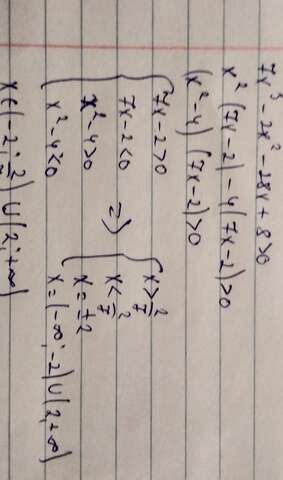 7x³ - 2x² - 28x + 8 > 0
x² (7x - 2) - 4 (7x - 2) > 0
(x² - 4) (7x - 2) > 0
{ 7x - 2 > 0
7x - 2 < 0
x² - 4 > 0
x² - 4 < 0
=>
{ x > 2/7
x < 2/7
x = ± 2
x = (-∞; -2) ∪ (2; +∞)
x ∈ (-2; 2/7) ∪ (2; +∞)